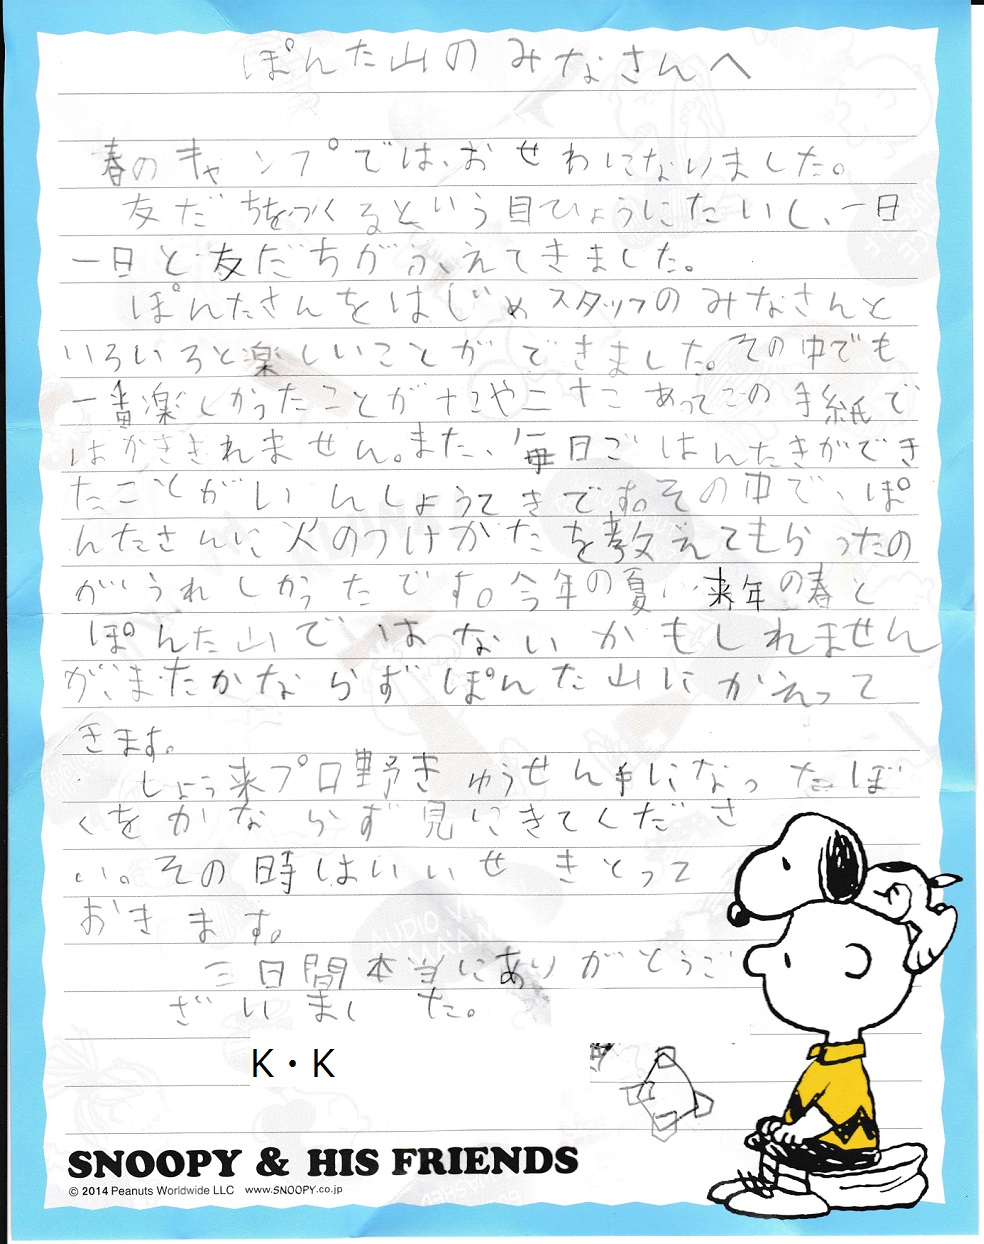 ぽんた山のみなさんへ
春のキャンプでは、おせわになりました。
友だちをつくるという目ひょうにたいし、一日
一日と友だちがふえてきました。
ぽんたさんをはじめスタッフのみなさんと
いろいろと楽しいことができました。その中でも
一番楽しかったことが
あってこの手紙で
はかききれません。また、毎日ごはんたきができ
たことがいんしょうてきです。その中で、ぽ
んたさんに火のつけかたを教えてもらったの
がうれしかったです。今年の夏、来年の春と
ぽんた山ではないかもしれません
が、またかならずぽんた山にかえって
きます。
しょう来プロ野きゅうせん手になったぼ
くをかならず見にきてくださ
い。その時はいいせきとって
おきます。
三日間本当にありがとうご
ざいました。
K・K
SNOOPY & HIS FRIENDS
© 2014 Peanuts Worldwide LLC www.SNOOPY.co.jp